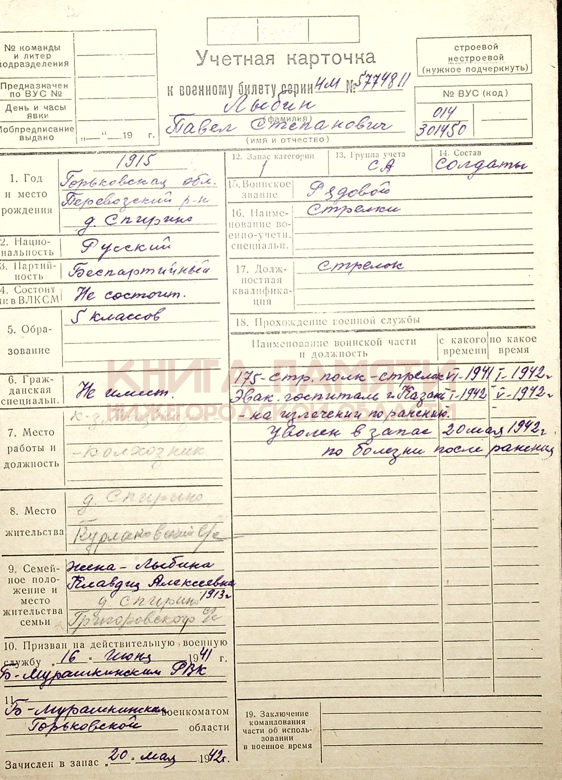 № команды
и литер
подразделения
Предназначен
по ВУС №
День и часы
явки
Мобпредписание
выдано „ — “ -19 г.
Учетная карточка
к военному билету серии НМ № 5774811
Лыбин
(фамилия)
Павел Степанович
(имя и отчество)
строевой
нестроевой
(нужное подчеркнуть)
№ ВУС (код)
014
301450
1915
1. Год
и место
рождения
Горьковская обл.
Перевозский р-н
д. Спирино
2. Нацио-
нальность
Русский
3. Партий-
ность
Беспартийный
4. Состоит
ли в ВЛКСМ
Не состоит.
5. Обра-
зование
5 классов
6. Граж-
данская
специальн.
Не имеет.
7. Место
работы и
должность
к-з
-Колхозник
8. Место
жительства
д. Спирино
9. Семей-
ное поло-
жение и
место
жительства
семьи
жена - Лыбина
Клавдия Алексеевна
1913г
д Спирино
Григоровского
10. Призван на действительную военную
службу „16 " Июня 1941 г.
Б-Мурашкинским РВК
11.
Б-Мурашкинским военкоматом
Горьковской области
Зачислен в запас „20 " мая 1942г.
12. Запас категории
1
13. Группа учета
СА
14. Состав
солдаты
15. Воинское
звание
Рядовой
16. Наиме-
нование во-
енно-учетн.
специальн.
Стрелки
17. Долж-
ностная
квалифика-
ция
стрелок
18. Прохождение военной службы
Наименование воинской части
и должность
с какого
времени
по какое
время
175-стр. полк-стрелок VI-1941 I-1942г.
Эвак. госпиталь г. Казань I-1942 V-1942г.
-на излечении по ранению.
Уволен в запас 20 мая 1942г.
по болезни после ранения
КНИГА ПАМЯТИ
19. Заключение
командования
части об исполь-
зовании
в военное время